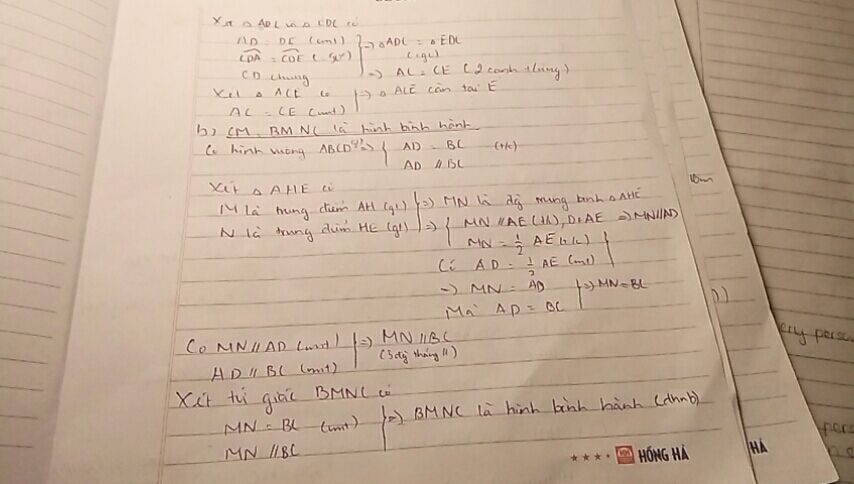 Xét △ ADC và △ EDC có
AD = DE (cmt)
CDA = CDE ( = 90°)
CD chung
⇒ △ADC = △EDC
(cgc)
⇒ AC = CE (2 cạnh t/ứng)
Xét △ ACE có
AC = CE (cmt)
⇒ △ ACE cân tại E
b) CM: BMNC là hình bình hành
Có hình vuông ABCD ⇒ { AD = BC (t/c)
AD // BC
Xét △ AHE có
M là trung điểm AH (gt)
N là trung điểm HE (gt)
⇒ MN là đg trung bình △ AHE
⇒ { MN // AE (t/c), D ∈ AE ⇒ MN//AD
MN = 1/2 AE (t/c)
Có AD = 1/2 AE (cmt)
⇒ MN = AD
Mà AD = BC
⇒ MN = BC
Có MN // AD (cmt)
AD // BC (cmt)
⇒ MN // BC
(3 đg thẳng //)
Xét tứ giác BMNC có
MN = BC (cmt)
MN // BC
⇒ BMNC là hình bình hành (dhnb)
HỒNG HÀ
HÀ